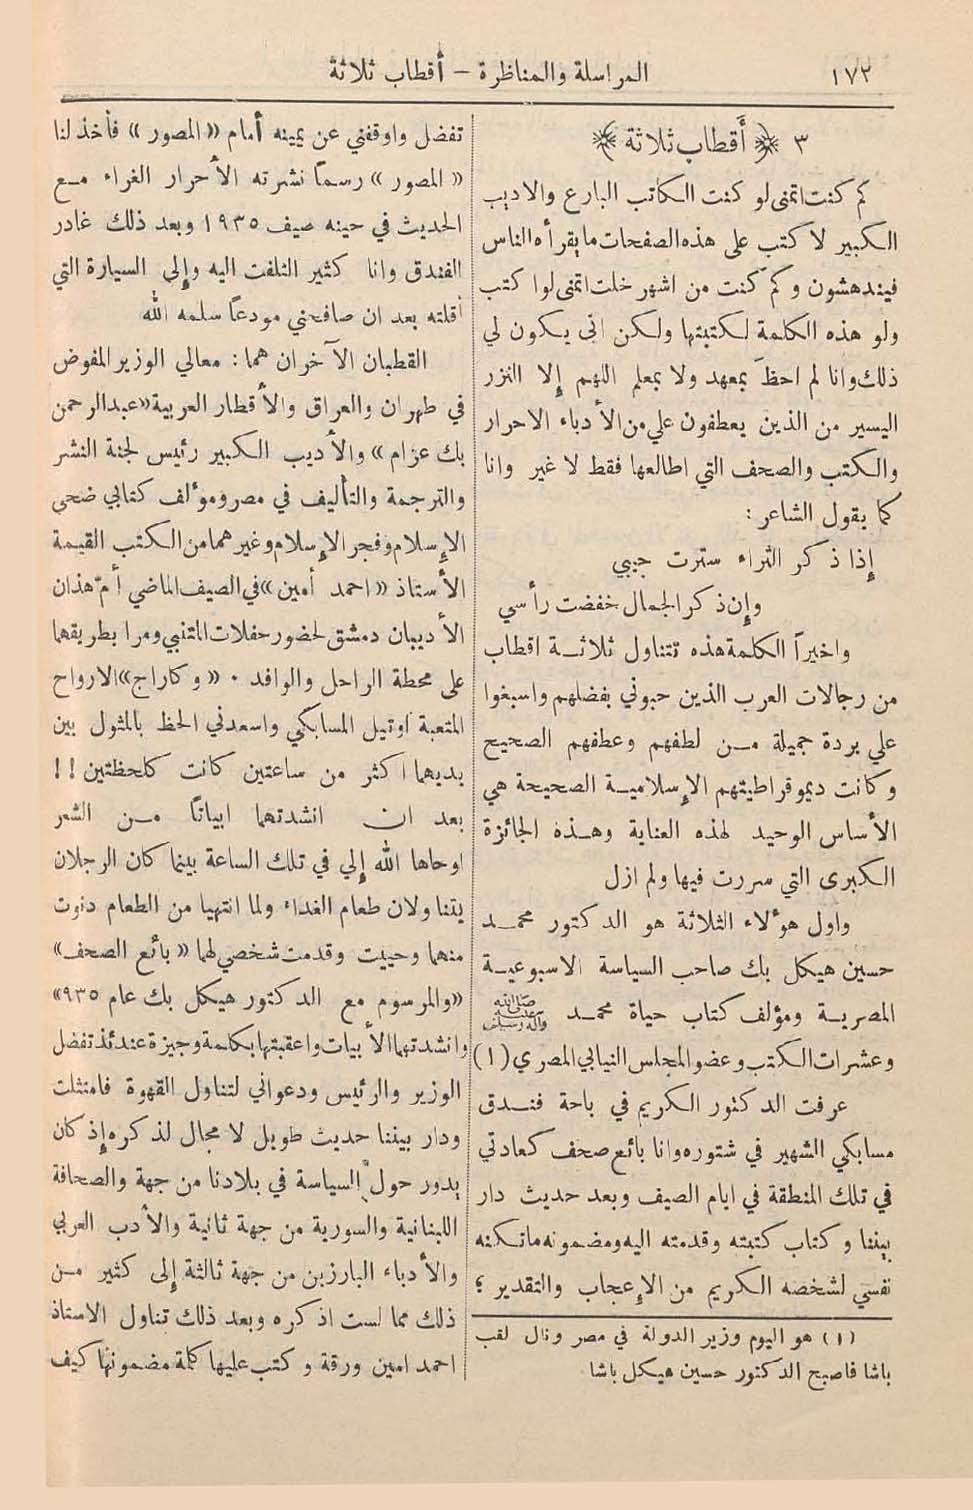 ١٧٢
المراسلة والمناظرة – أقطاب ثلاثة
٣ ﴿ أقطاب ثلاثة ﴾
كم كنت اتمنى لو كنت الكاتب البارع والاديب
الكبير لاكتب على هذه الصفحات ما يقرأه الناس
فيندهشون وكم كنت من اشهر خلت اتمنى لوا كتب
ولو هذه الكلمة لكتبتها ولكن انى يكون لي
ذلك وانا لم احظَ بمعهد ولا بمعلم اللهم إلا النزر
اليسير من الذين يعطفون علي من الأدباء الاحرار
والكتب والصحف التي اطالعها فقط لا غير وانا
كما يقول الشاعر :
إذا ذكر الثراء سترت جيبي
وإن ذكر الجمال خفضت رأسي
واخيراً الكلمة هذه تتناول ثلاثة اقطاب
من رجالات العرب الذين حبوني بفضلهم واسبغوا
علي بردة جميلة من لطفهم وعطفهم الصحيح
وكانت ديموقراطيتهم الإسلامية الصحيحة هي
الأساس الوحيد لهذه العناية وهذه الجائزة
الكبرى التي سررت فيها ولم ازل
واول هؤلاء الثلاثة هو الدكتور محمد
حسين هيكل بك صاحب السياسة الاسبوعية
المصرية ومؤلف كتاب حياة محمد
وعشرات الكتب وعضو المجلس النيابي المصري (١)
عرفت الدكتور الكريم في باحة فندق
مسابكي الشهير في شتوره وانا بائع صحف كعادتي
في تلك المنطقة في ايام الصيف وبعد حديث دار
بيننا وكتاب كتبته وقدمته اليه ومضمونه ماتكنه
نفسي لشخصه الكريم من الإعجاب والتقدير ؛
(١) هو اليوم وزير الدولة في مصر ونال لقب
باشا فاصبح الدكتور حسين هيكل باشا.
تفضل واوقفني عن يمينه أمام «المصور» فأخذ لنا
«المصور» رسماً نشرته الأحرار الغراء مع
الحديث في حينه صيف ١٩٣٥ وبعد ذلك غادر
الفندق وانا كثير التلفت اليه وإلى السيارة التي
أقلته بعد ان صافحني مودعاً سلمه الله
القطبان الآخران هما : معالي الوزير المفوض
في طهران والعراق والأقطار العربية «عبدالرحمن
بك عزام» والأديب الكبير رئيس لجنة النشر
والترجمة والتأليف في مصر ومؤلف كتابي ضحى
الإسلام وفجر الإسلام وغيرهما من الكتب القيمة
الأستاذ «احمد أمين» في الصيف الماضي أمّ هذان
الأديبان دمشق لحضور حفلات المتنبي ومرا بطريقهما
على محطة الراحل والوافد . «وكاراج» الارواح
المتعبة اوتيل المسابكي واسعدني الحظ بالمثول بين
يديهما اكثر من ساعتين كانت كلحظتين !!
بعد ان انشدتهما ابياتاً من الشعر
اوحاها الله إلي في تلك الساعة بينما كان الرجلان
يتناولان طعام الغداء ولما انتهيا من الطعام دنوت
منهما وحييت وقدمت شخصي لهما «بائع الصحف»
«والمرسوم مع الدكتور هيكل بك عام ٩٣٥»
وانشدتهما الأبيات واعقبتها بكلمة وجيزة عندئذ تفضل
الوزير والرئيس ودعواني لتناول القهوة فامتثلت
ودار بيننا حديث طويل لا مجال لذكره إذ كان
يدور حول السياسة في بلادنا من جهة والصحافة
اللبنانية والسورية من جهة ثانية والأدب العربي
والأدباء البارزين من جهة ثالثة إلى كثير من
ذلك مما لست اذكره وبعد ذلك تناول الاستاذ
احمد امين ورقة وكتب عليها كلمة مضمونها كيف